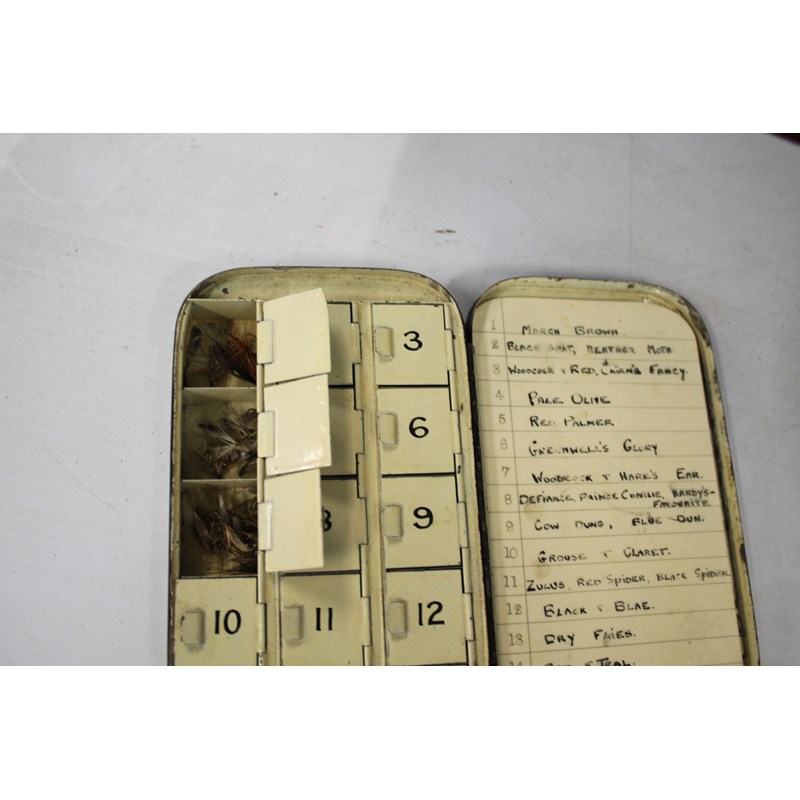 3
6
8
9
10
11
12
1 MARCH BROWN
2 BLACK GNAT, HEATHER MOTH
3 WOODCOCK & RED, CAIRN'S FANCY.
4 PALE OLIVE
5 RED PALMER
6 GREENWELL'S GLORY
7 WOODCOCK & HARE'S EAR.
8 DEFIANCE, PRINCE HARDY'S-
FAVOURITE
9 COW DUNG, BLUE DUN.
10 GROUSE & CLARET.
11 ZULUS, RED SPIDER, BLACK SPIDER
12 BLACK & BLAE.
13 DRY FLIES.
14 & TEAL.